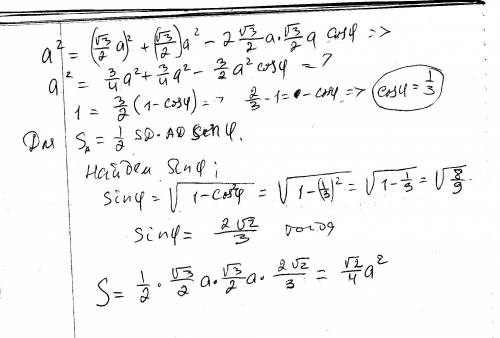 a² = (√3/2 a)² + (√3/2)a² - 2 √3/2 a · √3/2 a cosφ =>
a² = 3/4 a² + 3/4 a² - 3/2 a² cosφ = ?
1 = 3/2 (1 - cosφ) => 2/3 - 1 = - cosφ => cosφ = 1/3
Для S_Δ = 1/2 SD · AD sinφ.
Найдем sinφ;
sinφ = √(1 - cos²φ) = √(1 - (1/3)²) = √(1 - 1/3) = √(8/9)
sinφ = 2√2/3 тогда
S = 1/2 · √3/2 a · √3/2 a · 2√2/3 = √2/4 a²